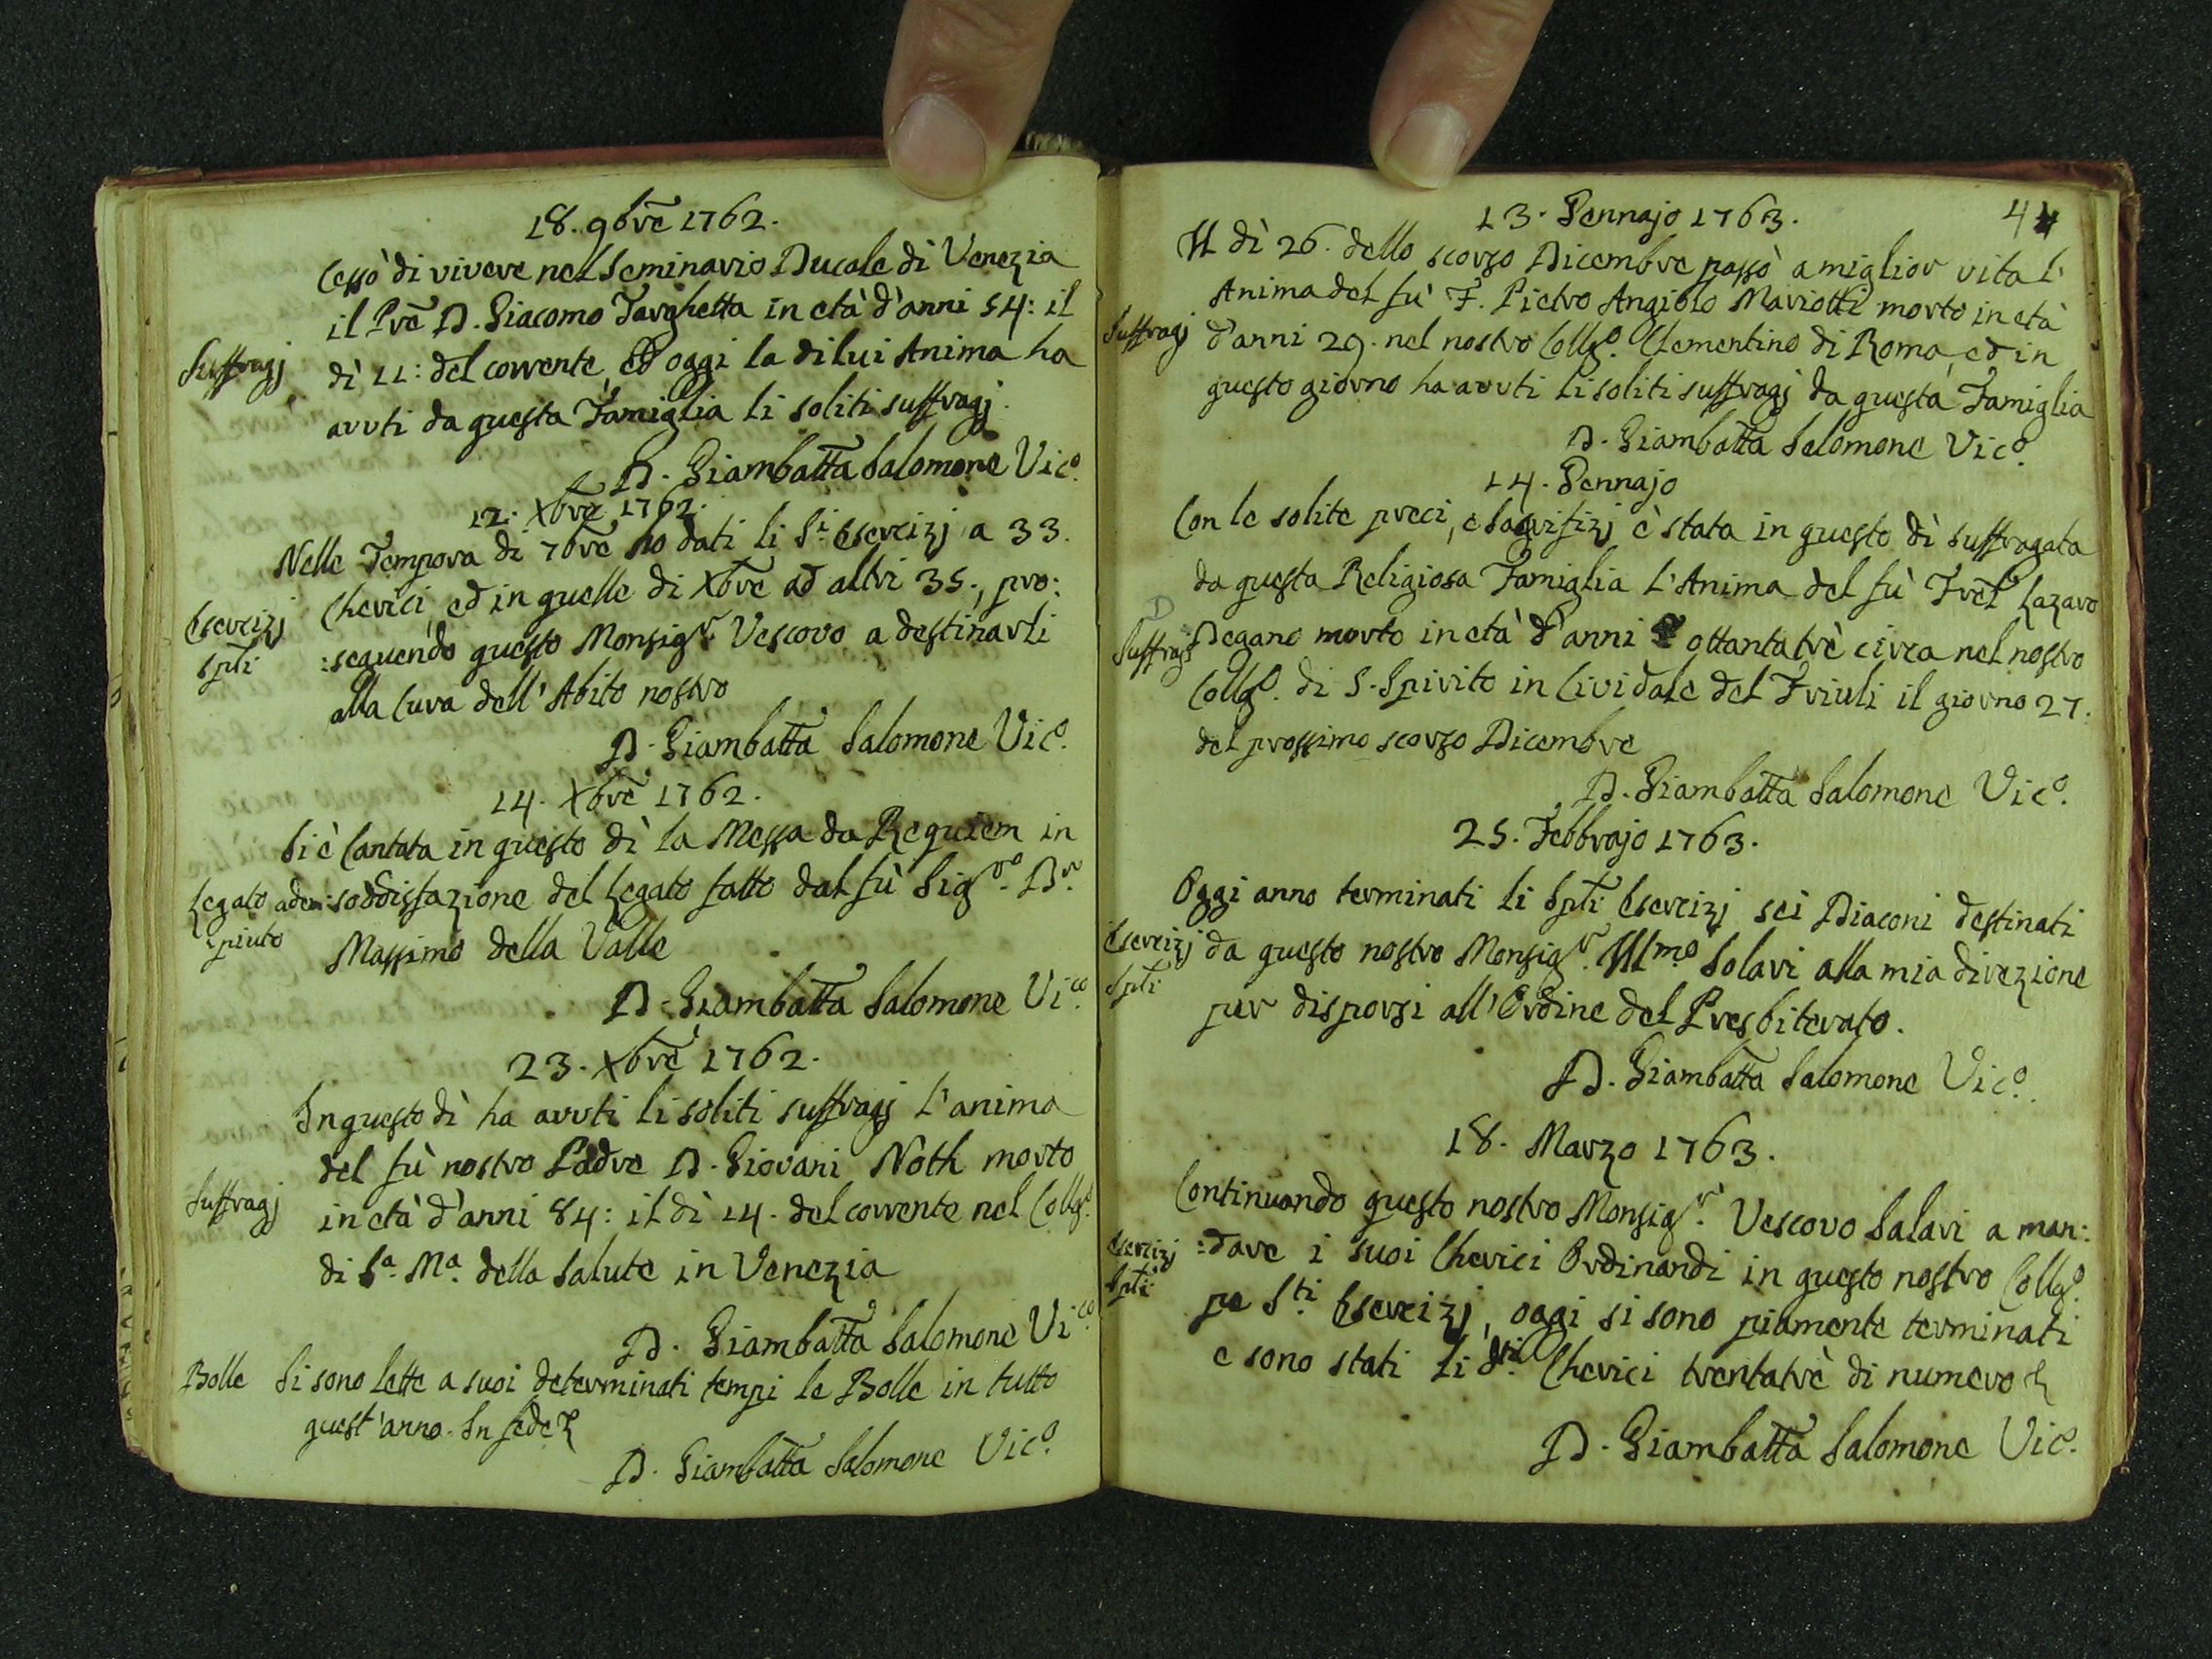 18. 9bre 1762.
Cessò di vivere nel Seminario Ducale di Venezia
il Pre D. Giacomo Targhetta in età d'anni 54: il
Suffragj
dì 11: del corrente, ed oggi la di lui Anima ha
avuti da questa Famiglia li soliti suffragj.
D. Giambatta Salomone Vico.
12. Xbre 1762.
Nelle Tempora di 7bre ho dati li Si. Esercizj a 33.
Esercizj
Spli
Cherici, ed in quelle di Xbre ad altri 35., pro:
:seguendo questo Monsigr. Vescovo a destinarli
alla Cura dell'Abito nostro
D. Giambatta Salomone Vico.
14. Xbre 1762.
Si è Cantata in questo dì la Messa da Requiem in
Legato adem:
:piuto
soddisfazione del Legato fatto dal fù Sigro. Dr.
Massimo della Valle
D. Giambatta Salomone Vico.
23. Xbre 1762.
In questo dì ha avuti li soliti suffragj l'anima
del fù nostro Padre D. Giovani Noth morto
Suffragj
in età d'anni 84: il dì 14. del corrente nel Collgo.
di Sa. Ma. della Salute in Venezia
D. Giambatta Salomone Vico.
Bolle
Si sono lette a suoi determinati tempi le Bolle in tutto
quest'anno. In fede
D. Giambatta Salomone Vico.
13. Gennajo 1763.
44
Il dì 26. dello scorso Dicembre passò a miglior vita l'
Anima del fù F. Pietro Angiolo Mariotti morto in età
Suffragj
d'anni 29. nel nostro Collgo. Clementino di Roma, ed in
questo giorno ha avuti li soliti suffragj da questa Famiglia
D. Giambatta Salomone Vico.
14. Gennajo
Con le solite preci, e Sagrifizj è stata in questo dì suffragata
da questa Religiosa Famiglia l'Anima del fù Frel Lazaro
D
Suffragj
Degano morto in età d'anni ottantatrè circa nel nostro
Collgo. di S. Spirito in Cividale del Friuli il giorno 27.
del prossimo scorso Dicembre
D. Giambatta Salomone Vico.
25. Febbrajo 1763.
Oggi anno terminati li Spli Esercizj sei Diaconi destinati
Esercizj
Spli
da questo nostro Monsigr. Illmo Solari alla mia direzione
per disporsi all'Ordine del Presbiterato.
D. Giambatta Salomone Vico.
18. Marzo 1763.
Continuando questo nostro Monsigr. Vescovo Salari a man:
Esercizj
Spli
:dare i suoi Cherici Ordinandi in questo nostro Collgo.
pe Sti. Esercizj, oggi si sono piamente terminati
e sono stati li dti. Cherici trentatrè di numero
D. Giambatta Salomone Vico.